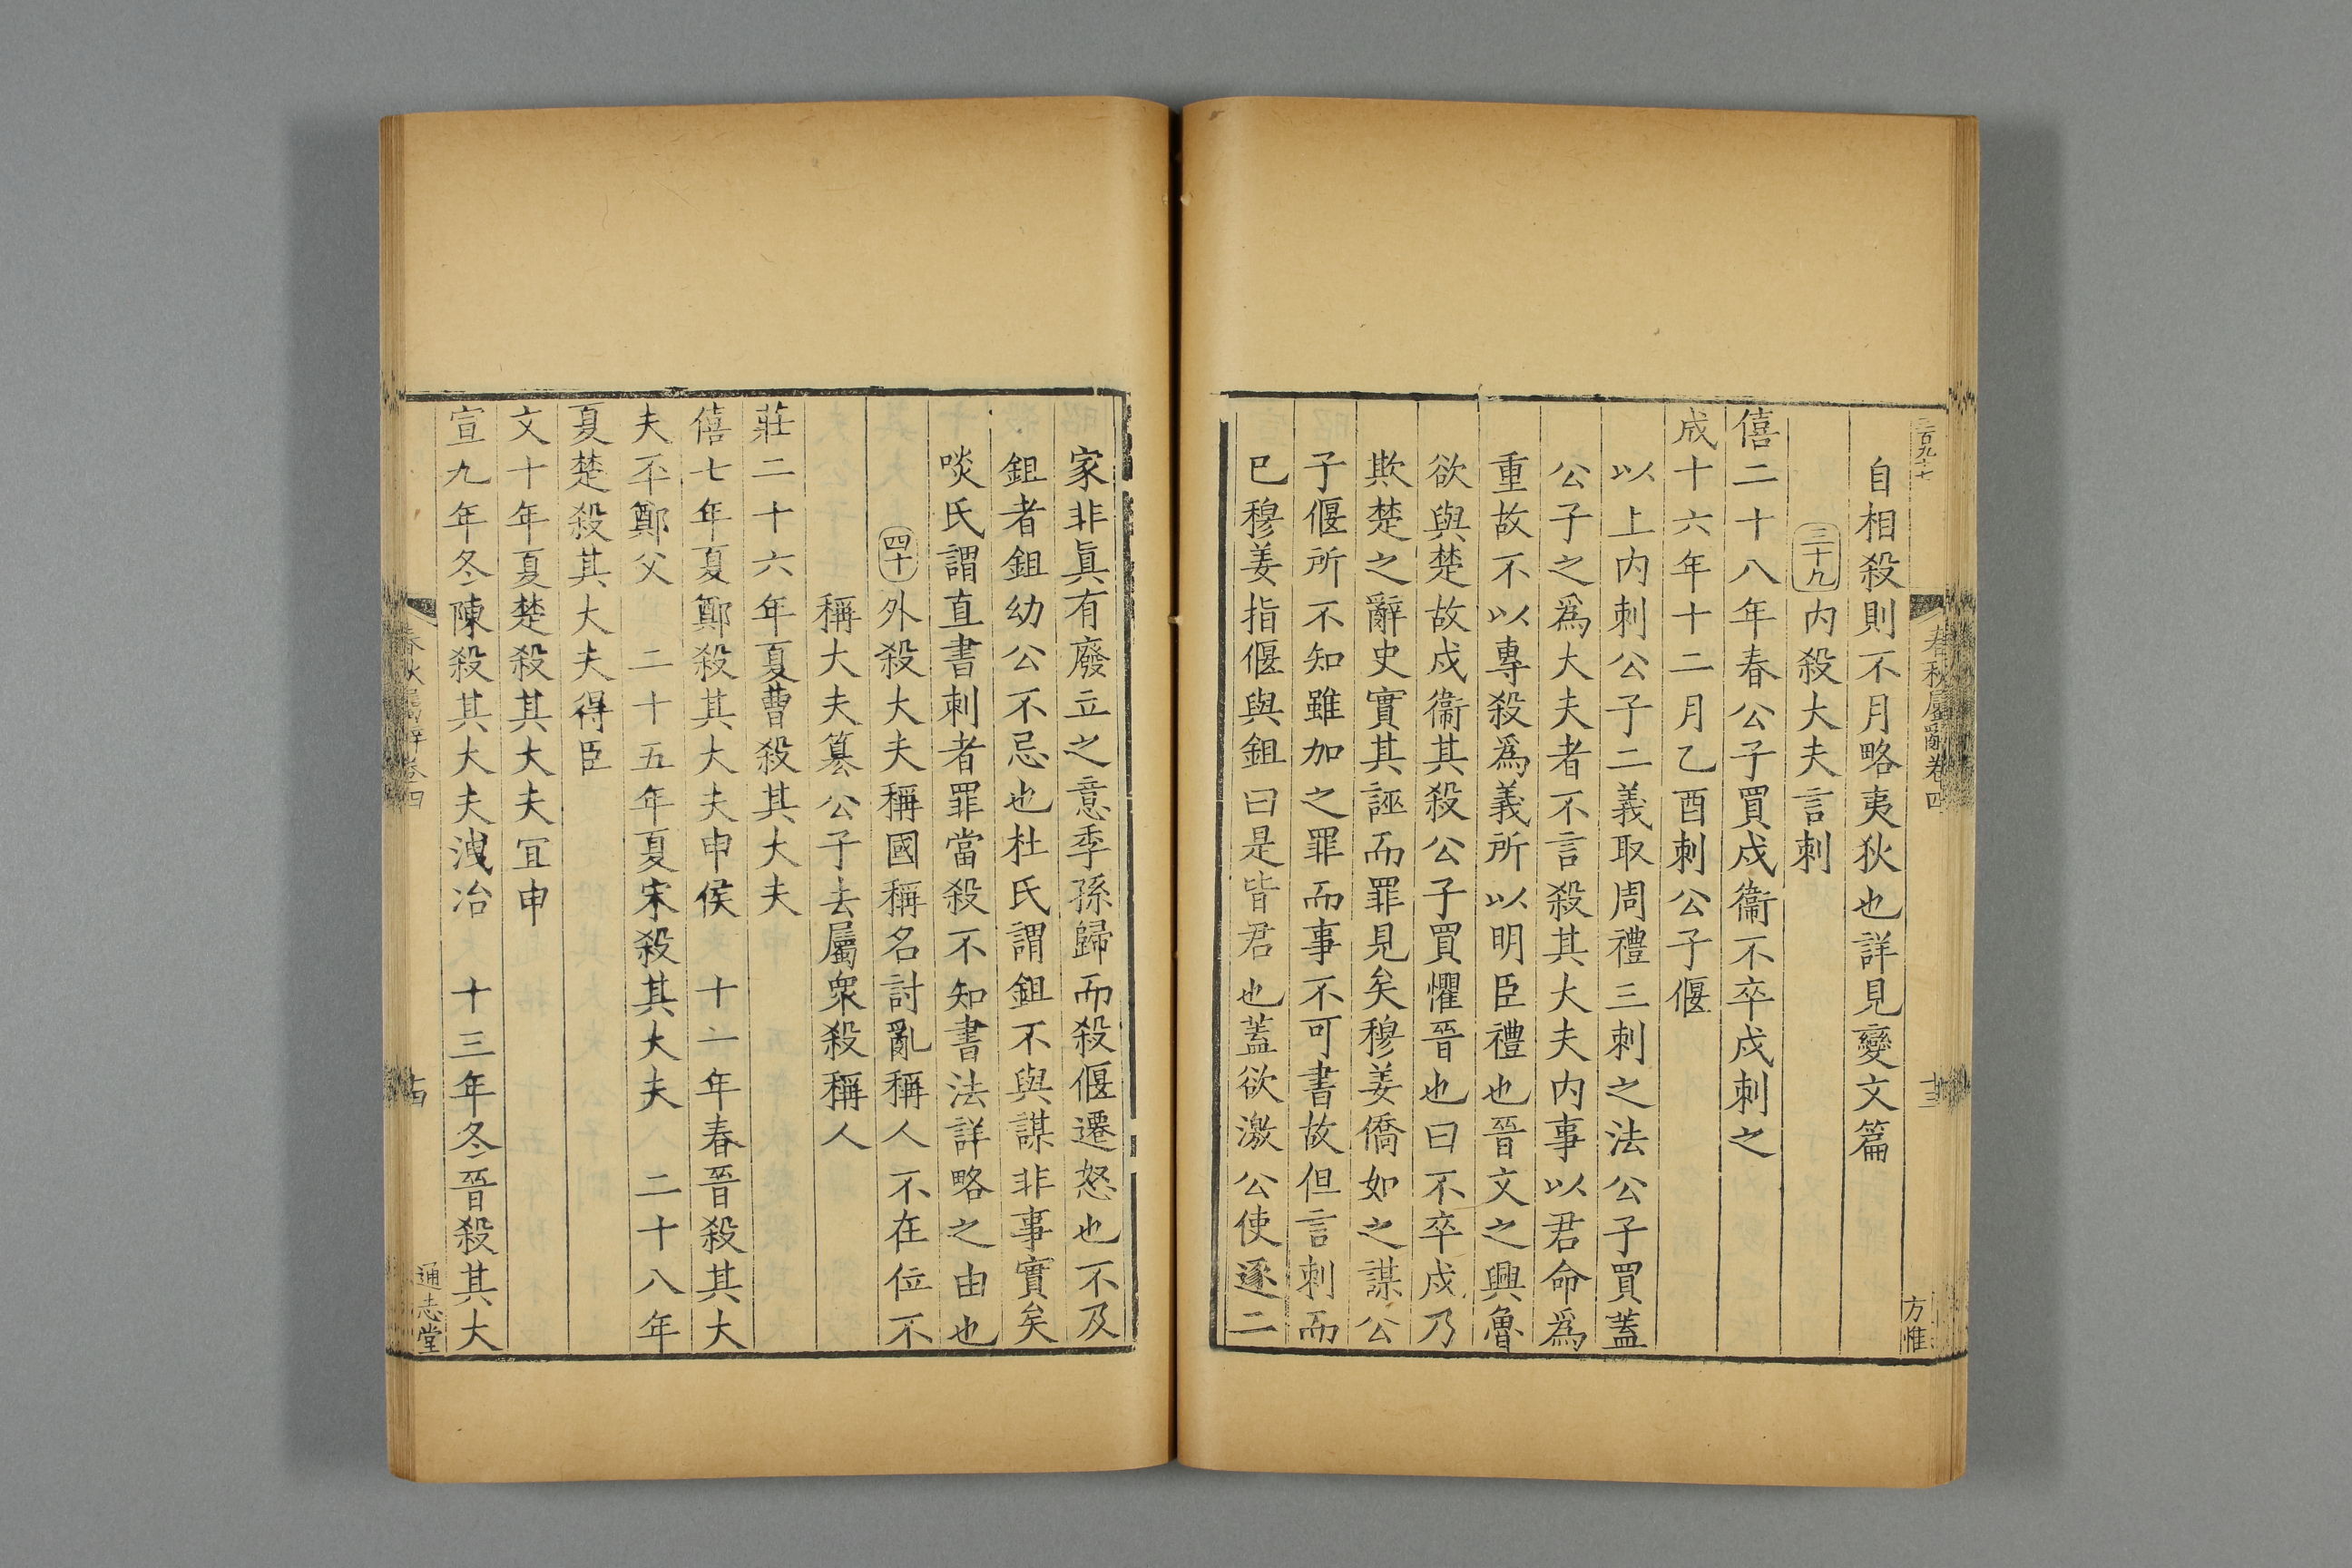 春秋屬辭卷四
十三
方惟
自相殺則不月略夷狄也詳見變文篇
三十九 內殺大夫言刺
僖二十八年春公子買戍衞不卒戍刺之
成十六年十二月乙酉刺公子偃
以上內刺公子二義取周禮三刺之法公子買蓋
公子之爲大夫者不言殺其大夫內事以君命爲
重故不以專殺爲義所以明臣禮也晉文之興魯
欲與楚故戍衞其殺公子買懼晉也曰不卒戍乃
欺楚之辭史實其誣而罪見矣穆姜僑如之謀公
子偃所不知雖加之罪而事不可書故但言刺而
已穆姜指偃與鉏曰是皆君也蓋欲激公使逐二
家非眞有廢立之意季孫歸而殺偃遷怒也不及
鉏者鉏幼公不忌也杜氏謂鉏不與謀非事實矣
啖氏謂直書刺者罪當殺不知書法詳略之由也
四十 外殺大夫稱國稱名討亂稱人不在位不
稱大夫篡公子去屬衆殺稱人
莊二十六年夏曹殺其大夫
僖七年夏鄭殺其大夫申侯 十一年春晉殺其大
夫丕鄭父 二十五年夏宋殺其大夫 二十八年
夏楚殺其大夫得臣
文十年夏楚殺其大夫宜申
宣九年冬陳殺其大夫洩冶 十三年冬晉殺其大
春秋屬辭卷四
十四
通志堂